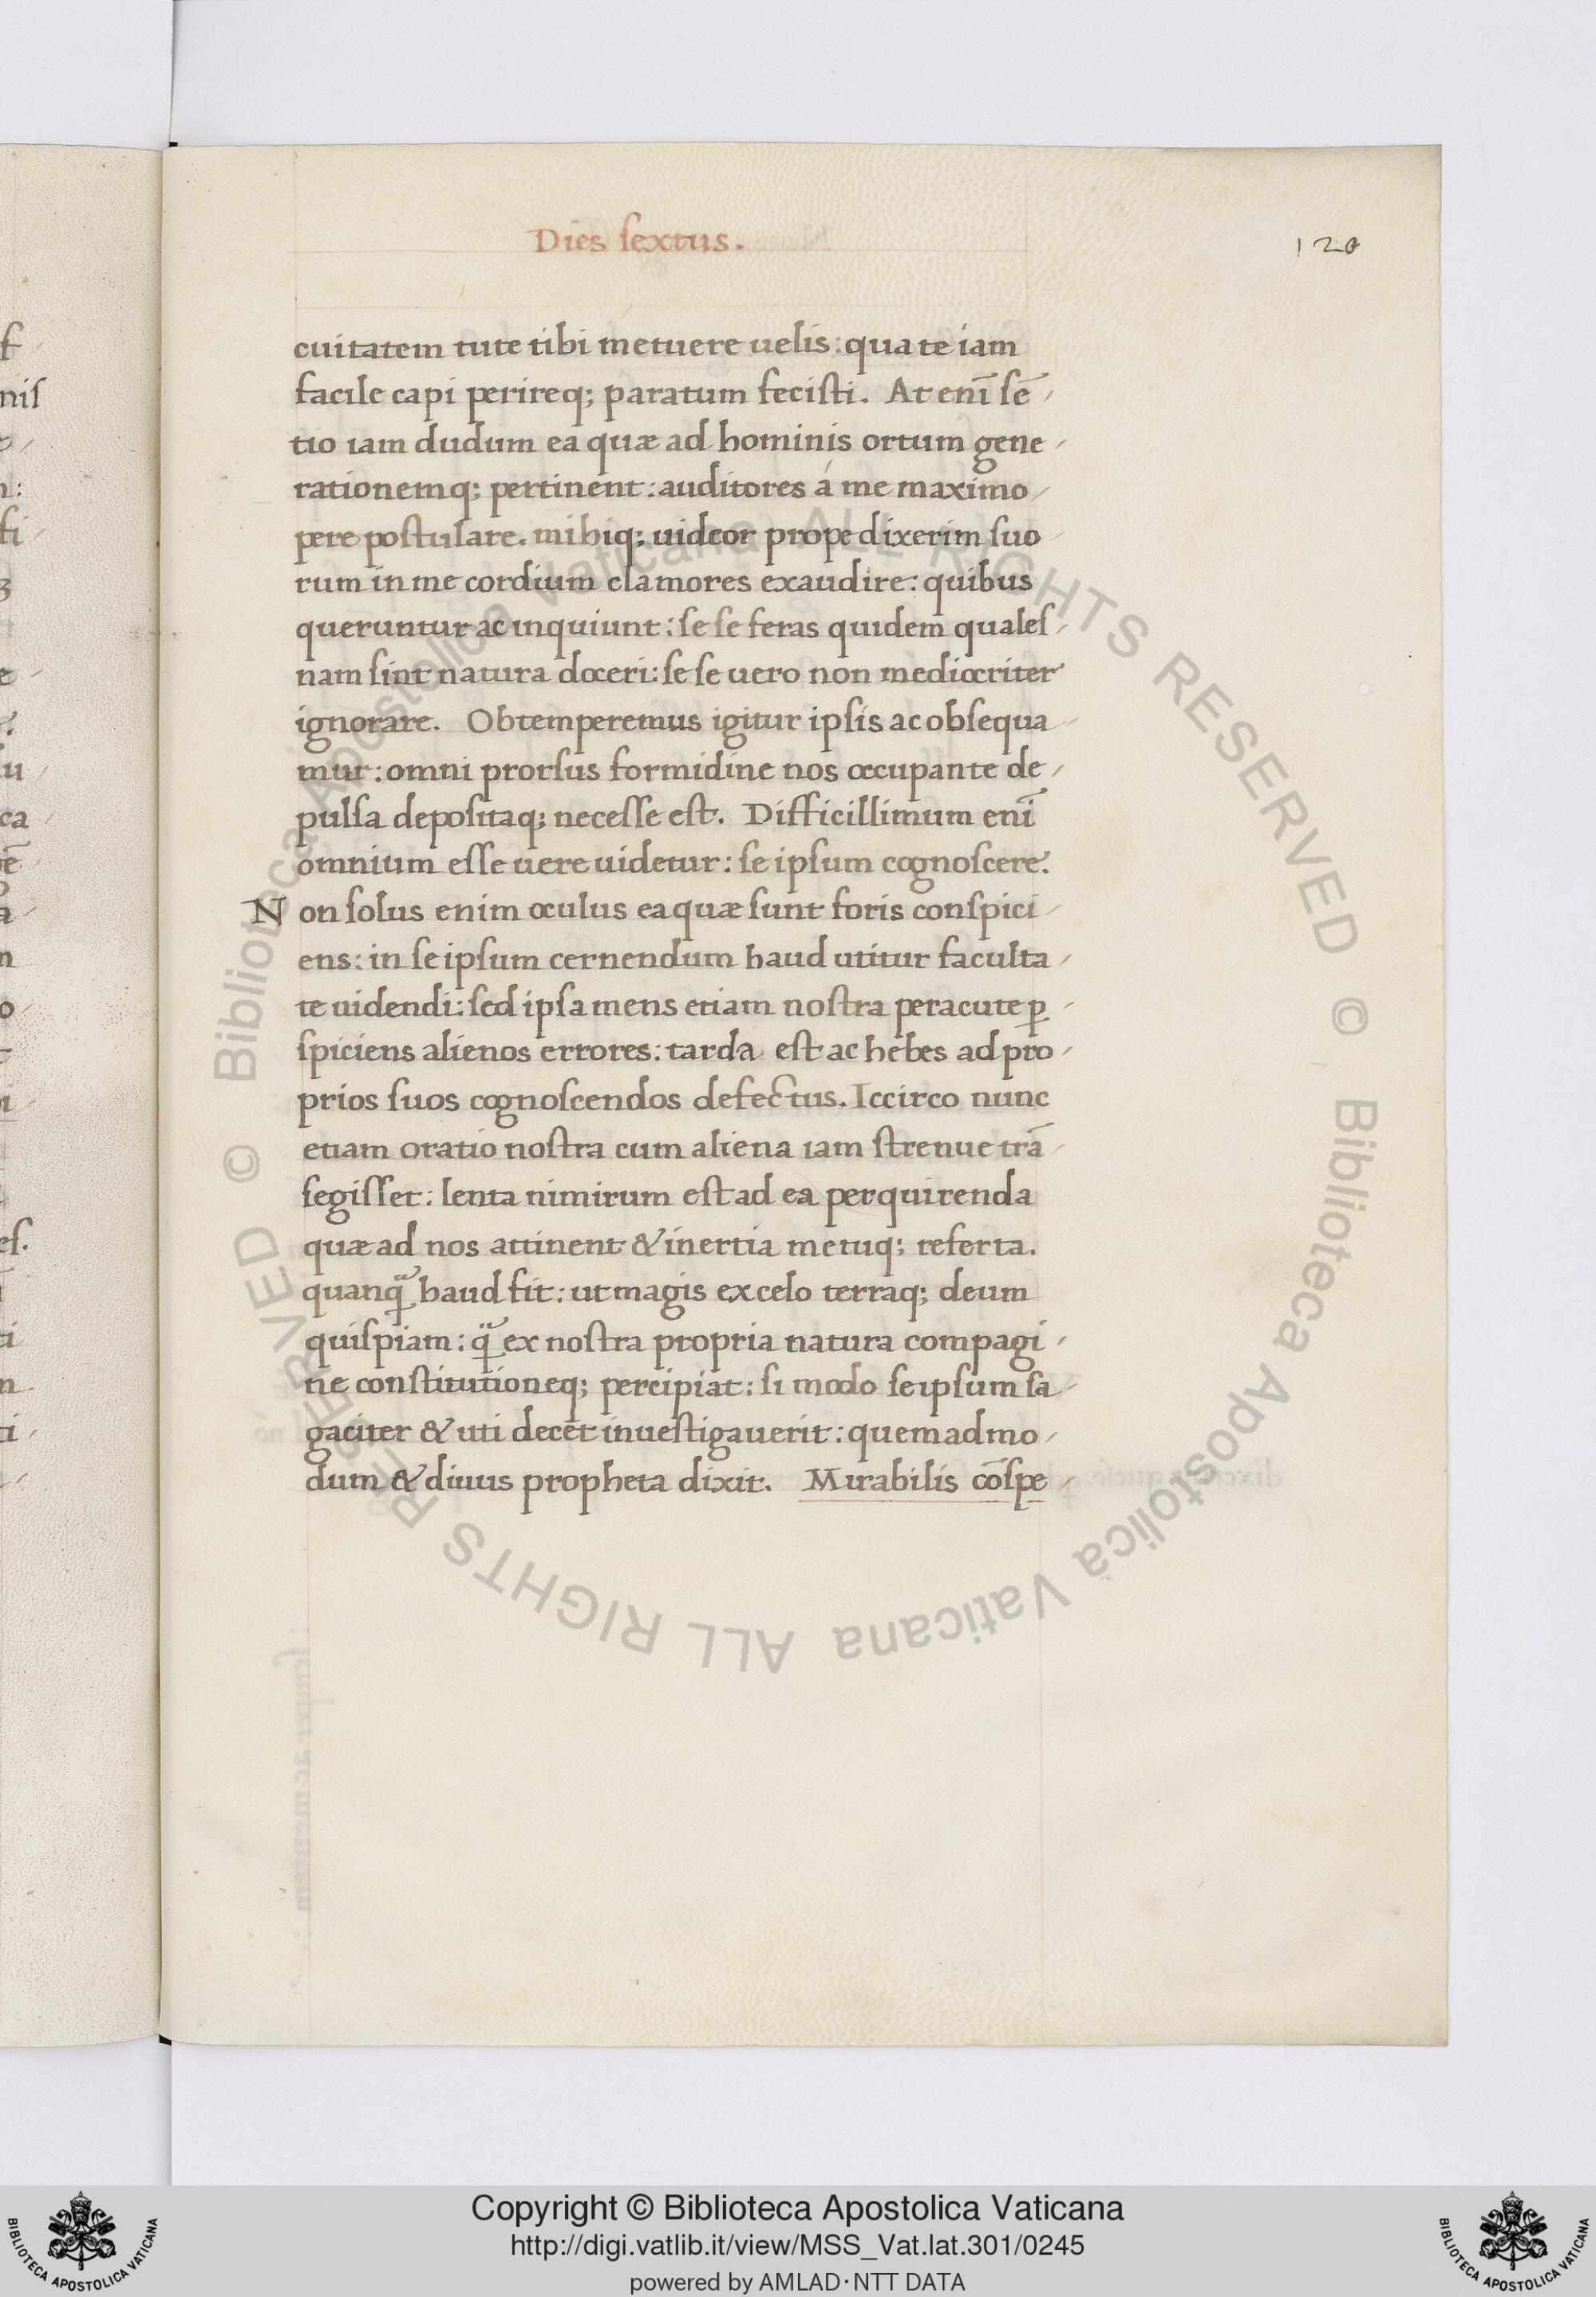 Dies sextus.
120
cuitatem tute tibi metuere uelis: qua te iam
facile capi perireq; paratum fecisti. At enĩ sẽ
tio iam dudum ea quæ ad hominis ortum gene
rationemq; pertinent: auditores á me maximo
pere postulare. mihiq; uideor prope dixerim suo
rum in me cordium clamores exaudire: quibus
queruntur ac inquiunt: se se feras quidem quales
nam sint natura doceri: se se uero non mediocriter
ignorare. Obtemperemus igitur ipsis ac obsequa
mur: omni prorsus formidine nos occupante de
pulsa depositaq; necesse est. Difficillimum enĩ
omnium esse uere uidetur: se ipsum cognoscere.
Non solus enim oculus ea quæ sunt foris conspici
ens: in se ipsum cernendum haud utitur faculta
te uidendi: sed ipsa mens etiam nostra peracute ꝑ
spiciens alienos errores: tarda est ac hebes ad pro
prios suos cognoscendos defectus. Iccirco nunc
etiam oratio nostra cum aliena iam strenue trã
segisset: lenta nimirum est ad ea perquirenda
quæ ad nos attinent & inertia metuq; referta.
quanq̃ haud fit: ut magis ex celo terraq; deum
quispiam: q̃ ex nostra propria natura compagi
ne constitutioneq; percipiat: si modo se ipsum sa
gaciter & uti decet inuestigauerit: quemadmo
dum & diuus propheta dixit. Mirabilis cõspe
Copyright © Biblioteca Apostolica Vaticana
http://digi.vatlib.it/view/MSS_Vat.lat.301/0245
powered by AMLAD·NTT DATA